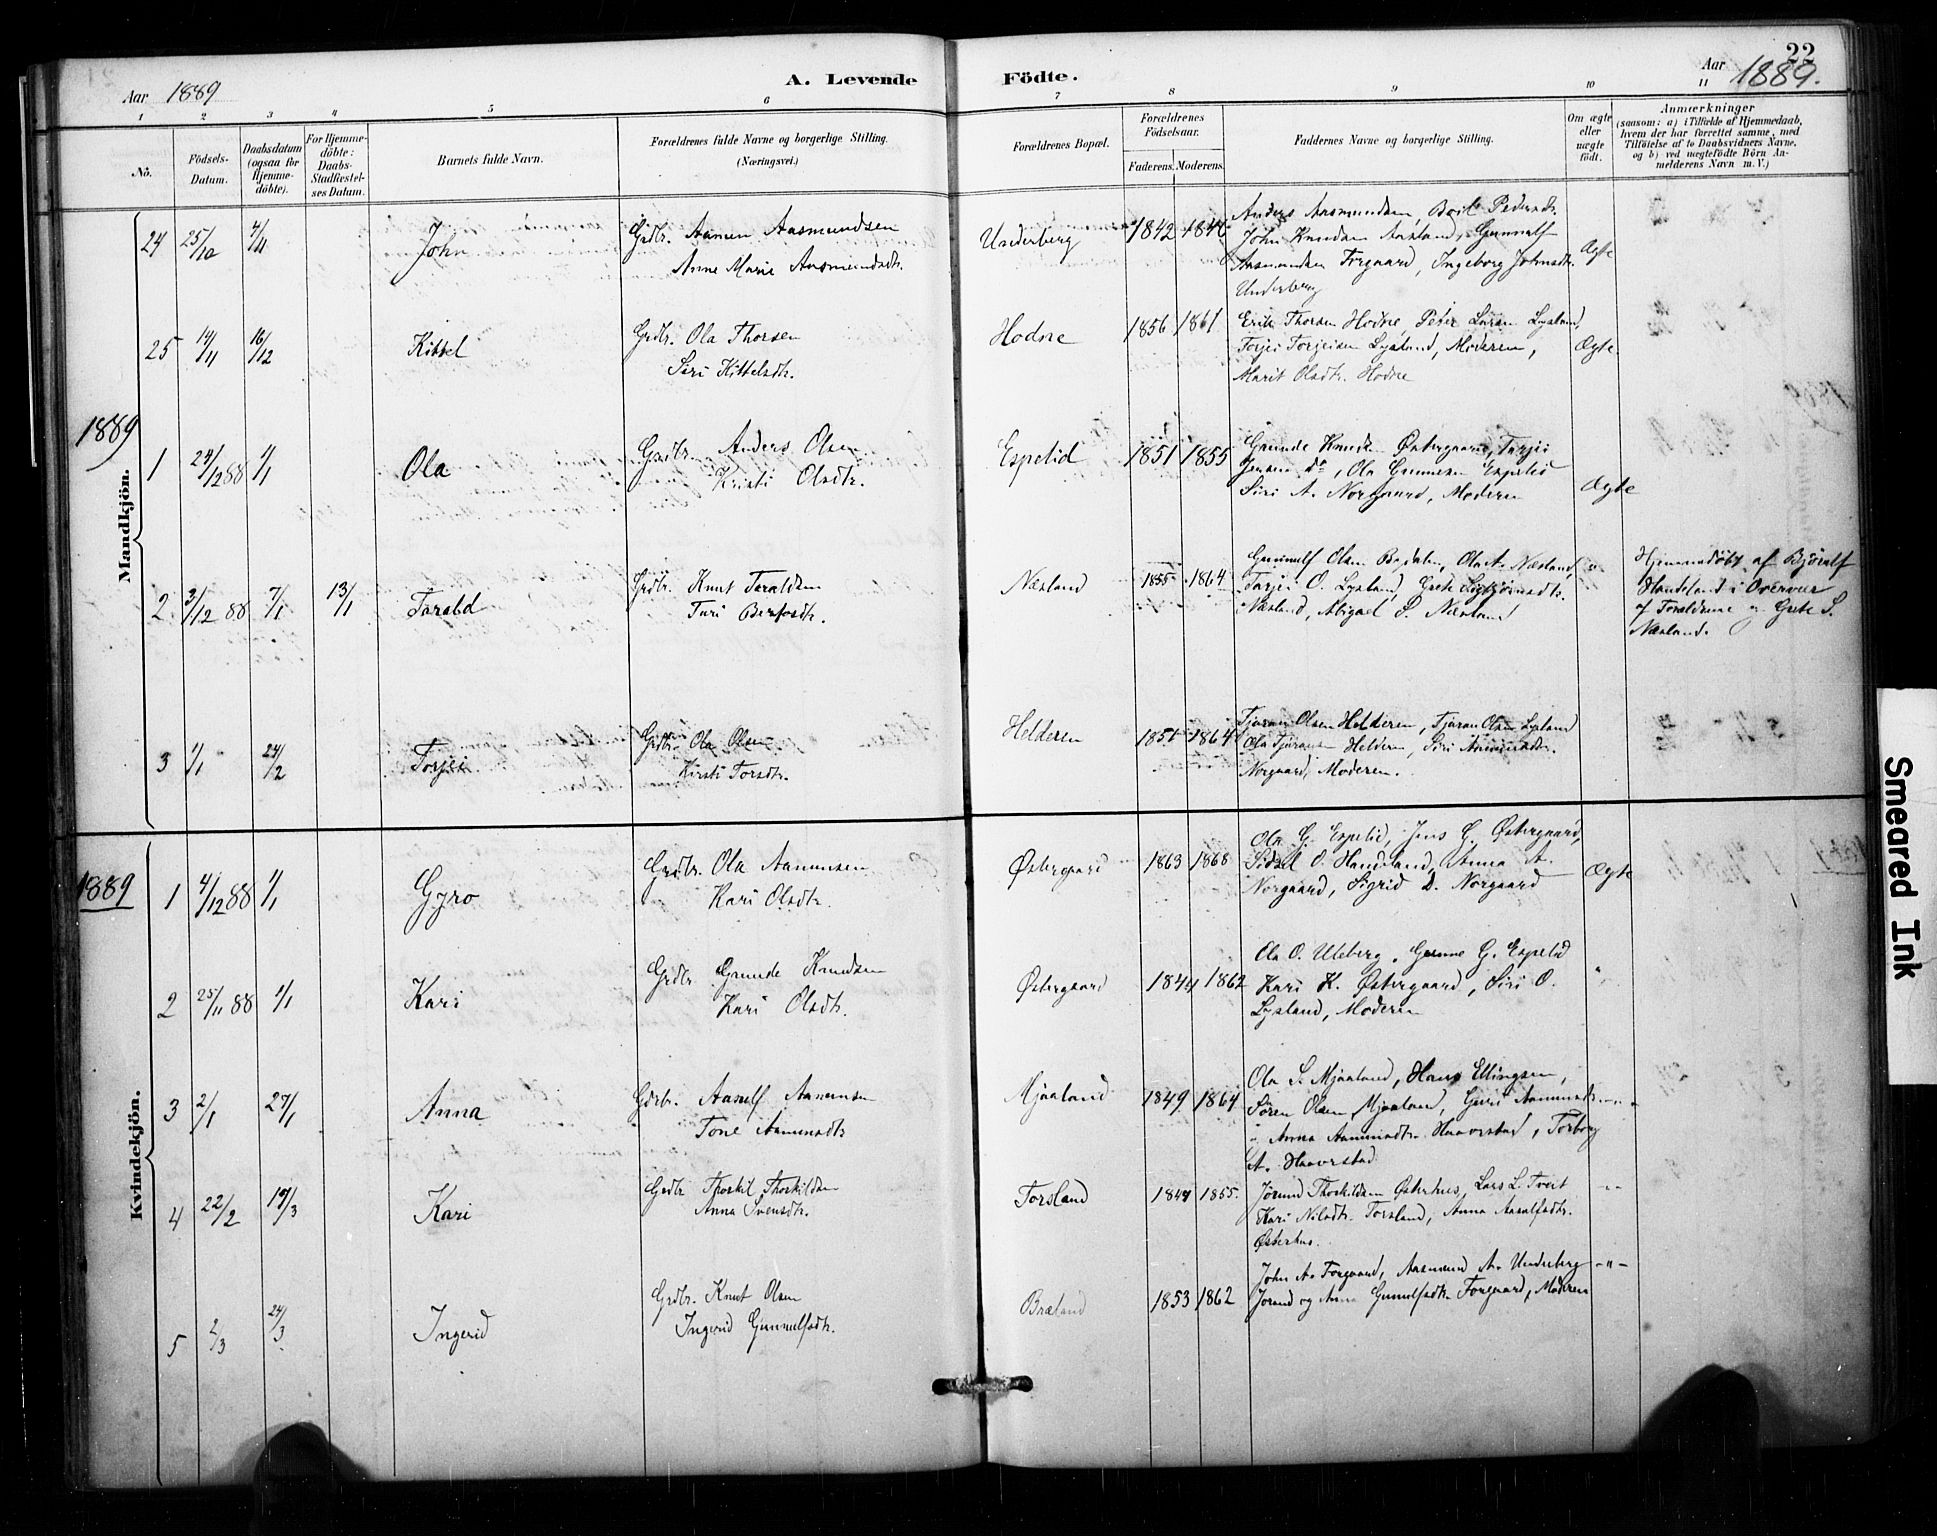 22
Aar 1889
A. Levende Födte.
Aar 1889.
1 2 3 4 5 6 7 8 9 10 11
No.
Födsels-Datum.
Daabsdatum (ogsaa for Hjemme-döbte).
For Hjemme-döbte: Daabs-Stadfæstel-ses Datum.
Barnets fulde Navn.
Forældrenes fulde Navne og borgerlige Stilling.
(Næringsvei.)
Forældrenes Bopæl.
Forældrenes Födselsaar.
Faderens. Moderens.
Faddernes Navne og borgerlige Stilling.
Om ægte eller uægte födt.
Anmærkninger
(saasom: a) i Tilfælde af Hjemmedaab, hvem der har forrettet samme, med Tilföielse af to Daabsvidners Navne, og b) ved uægtefödte Börn An-melderens Navn m. V.)
Mandkjön.
24 25/10 4/11 John
Grdbr. Aamun Aasmundsen
Anne Marie Aasmundsdtr.
Underberg 1842 1846
Anders Aasmundsen, Boil Pedersdtr.
John Knudsen Aasland, Gunnulf
Aasmundsen Forgaard, Ingeborg Johnsdtr.
Underberg
Ægte
25 14/11 16/12 Kittel
Grdbr. Ola Thorsen
Siri Kittelsdtr.
Hodne 1856 1861
Erik Thorsen Hodne, Peter Larsen Lysland,
Torjei Torjeisen Lysland, Moderen,
Marit Olsdtr. Hodne
Ægte.
1889
1 24/12 88 1/1 Ola
Grdbr. Anders Olsen
Kristi Olsdtr.
Espetid 1851 1855
Gunde Knuds. Østergaard, Torjei
Jensen do, Ola Gunnesen Espetid
Siri A. Norgaard, Moderen
Ægte
2 3/12 88 7/1 13/1 Tarald
Grdbr. Knut Taraldsen
Turi Berfosdtr.
Næsland 1855 1864
Gunnulf Olsen Bodalen, Ola A. Næsland,
Tarjei O. Lysland, Grete
Næsland, Abigael S. Næsland
"
Hjemmedöbt af Björulf
Handeland i Overvær
af Forældrene og Grete S.
Næsland.
3 1/1 24/2 Torjei
Grdbr. Ola Olsen
Kirsti Torsdtr.
Helderen 1851 1864
Tjøran Olsen Helderen, Tjøran Olsen Lysland
Ola Tjøransen Helderen, Siri Aanensdtr.
Norgaard, Moderen.
Kvindekjön.
1889
1 4/12 88 1/1 Gyro
Grdbr. Ola Aanensen
Kari Olsdtr.
Østergaard 1863 1868
Ola G. Espetid, Jens G. Østergaard,
Sidsel O. Handeland, Anna A.
Norgaard, Sigrid D. Norgaard
Ægte
2 25/11 88 1/1 Kari
Grdbr. Gunde Knudsen
Kari Olsdtr.
Østergaard 1844 1862
Ola O. Uleberg, Gunne G. Espetid
Kari K. Østergaard, Siri O.
Lysland, Moderen
"
3 2/1 27/1 Anna
Grdbr. Aanulf Aanensen
Tone Aanensdtr.
Mjaaland 1849 1864
Ola S. Mjaaland, Hans Ellingsen,
Søren Olsen Mjaaland, Guri Aanensdtr.
og Anna Aanensdtr. Haaverstad, Torborg
A. Haaverstad
-"-
4 22/2 17/3 Kari
Grdbr. Thorkil Thorkildsen
Anna Svensdtr.
Torsland 1847 1855.
Jørund Thorkildsen Østerhus, Lars L. Tveit
Kari Nilsdtr. Torsland, Anna Aanulfsdtr.
Østerhus.
-"-
5 2/3 24/3 Ingerid
Grdbr. Knut Olsen
Ingerid Gunnulfsdtr.
Bræland 1853 1862
John A. Forgaard, Aasmund A. Underberg
Jorand og Anna Gunulfsdtr. Forgaard, Moderen
-"-
Smeared Ink